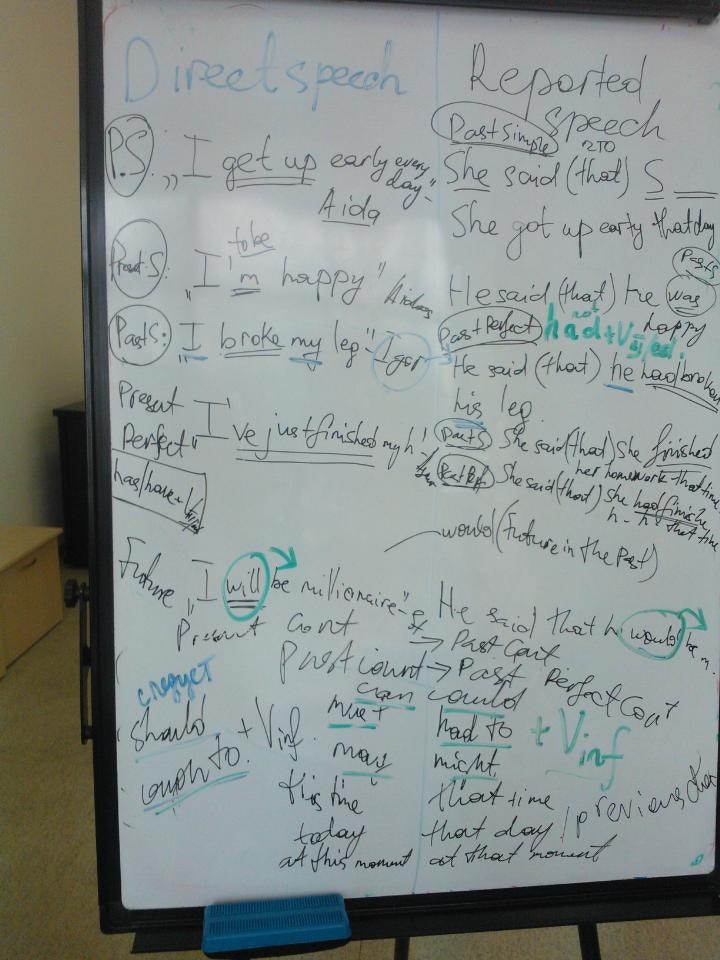 Direct speech
Reported
speech
Past Simple
P.S. „I get up early every
day“
Aida
She said (that) S
She got up early that day
to be
Present S: „I'm happy“
Past S
He said (that) he was
happy
Past S: „I broke my leg“ Igor
Past Perfect had + V3/ed.
He said (that) he had broken
his leg.
Present
Perfect
has/have + V
I've just finished my h
Past S She said (that) she finished
her homework that time
Past Perf She said (that) she had finishe
h-h that time
would (Future in the Past)
Future „I will be millionaire“
He said that h would be m.
Present Cont → Past Cont
Past count → Past Perfect Cont
следует
should
ough to. + Vinf.
can could
must had to + Vinf
may might
this time that time
today that day / previous
at this moment at that moment